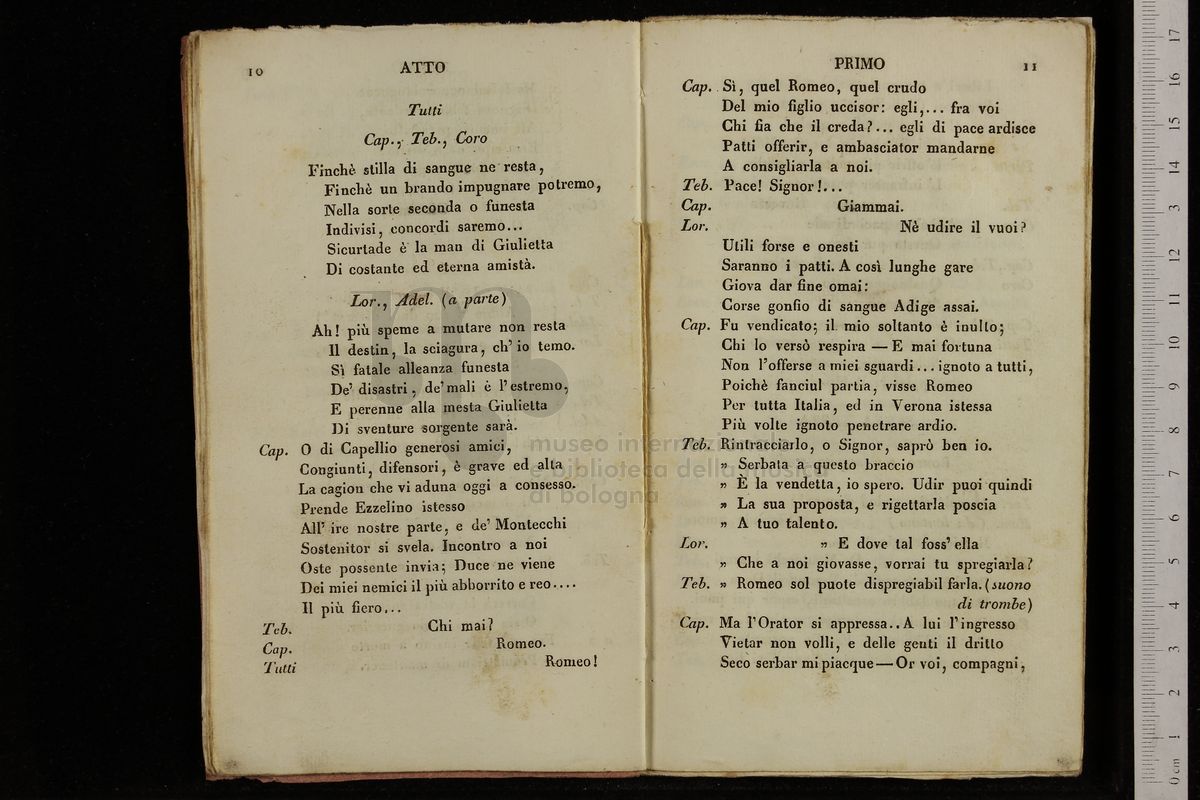 10 ATTO
Tutti
Cap., Teb., Coro
Finchè stilla di sangue ne resta,
Finchè un brando impugnare potremo,
Nella sorte seconda o funesta
Indivisi, concordi saremo...
Sicurtade è la man di Giulietta
Di costante ed eterna amistà.
Lor., Adel. (a parte)
Ah! più speme a mutare non resta
Il destin, la sciagura, ch' io temo.
Sì fatale alleanza funesta
De' disastri, de' mali è l' estremo,
E perenne alla mesta Giulietta
Di sventure sorgente sarà.
Cap. O di Capellio generosi amici,
Congiunti, difensori, è grave ed alta
La cagion che vi aduna oggi a consesso.
Prende Ezzelino istesso
All' ire nostre parte, e de' Montecchi
Sostenitor si svela. Incontro a noi
Oste possente invia; Duce ne viene
Dei miei nemici il più abborrito e reo....
Il più fiero...
Teb. Chi mai?
Cap. Romeo.
Tutti Romeo!
PRIMO 11
Cap. Sì, quel Romeo, quel crudo
Del mio figlio uccisor: egli,... fra voi
Chi fia che il creda?... egli di pace ardisce
Patti offerir, e ambasciator mandarne
A consigliarla a noi.
Teb. Pace! Signor!...
Cap. Giammai.
Lor. Nè udire il vuoi?
Utili forse e onesti
Saranno i patti. A così lunghe gare
Giova dar fine omai:
Corse gonfio di sangue Adige assai.
Cap. Fu vendicato; il mio soltanto è inulto;
Chi lo versò respira — E mai fortuna
Non l'offerse a miei sguardi... ignoto a tutti,
Poichè fanciul partia, visse Romeo
Per tutta Italia, ed in Verona istessa
Più volte ignoto penetrare ardio.
Teb. Rintracciarlo, o Signor, saprò ben io.
» Serbata a questo braccio
» È la vendetta, io spero. Udir puoi quindi
» La sua proposta, e rigettarla poscia
» A tuo talento.
Lor. » E dove tal foss' ella
» Che a noi giovasse, vorrai tu spregiarla?
Teb. » Romeo sol puote dispregiabil farla. (suono
di trombe)
Cap. Ma l'Orator si appressa.. A lui l'ingresso
Vietar non volli, e delle genti il dritto
Seco serbar mi piacque — Or voi, compagni,
museo internazionale
e biblioteca della musica
di bologna
0 cm 1 2 3 4 5 6 7 8 9 10 11 12 13 14 15 16 17